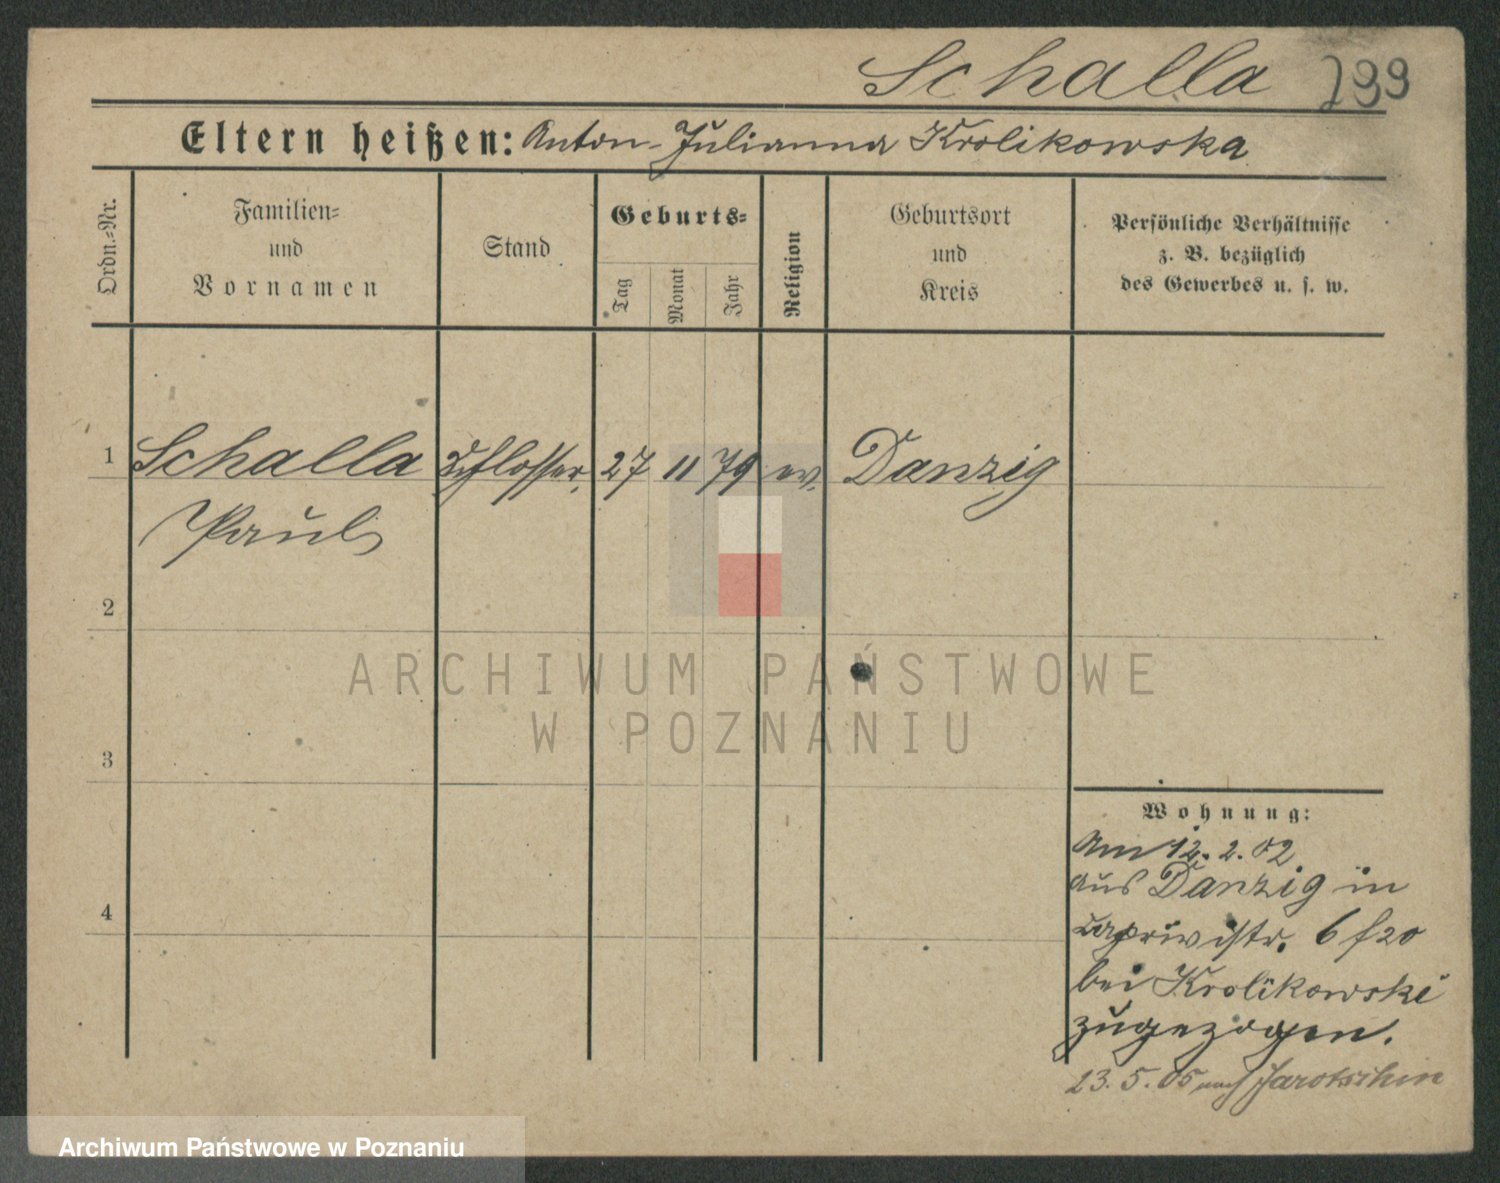 Schalla 799
Eltern heißen: Anton - Julianna Krolikowska
Ordn.-Nr.
Familien-
und
Vornamen
Stand
Geburts-
Tag
Monat
Jahr
Religion
Geburtsort
und
Kreis
Persönliche Verhältnisse
z. B. bezüglich
des Gewerbes u. s. w.
1 Schalla Schlosser 27 11 79 ev. Danzig
Paul
2
3
4
Wohnung:
Am 12. 2. 02
aus Danzig in
Caprivistr. 6 f 20
bei Krolikowski
zugezogen.
23. 5. 05 nach Jarotschin
ARCHIWUM PAŃSTWOWE
W POZNANIU
Archiwum Państwowe w Poznaniu